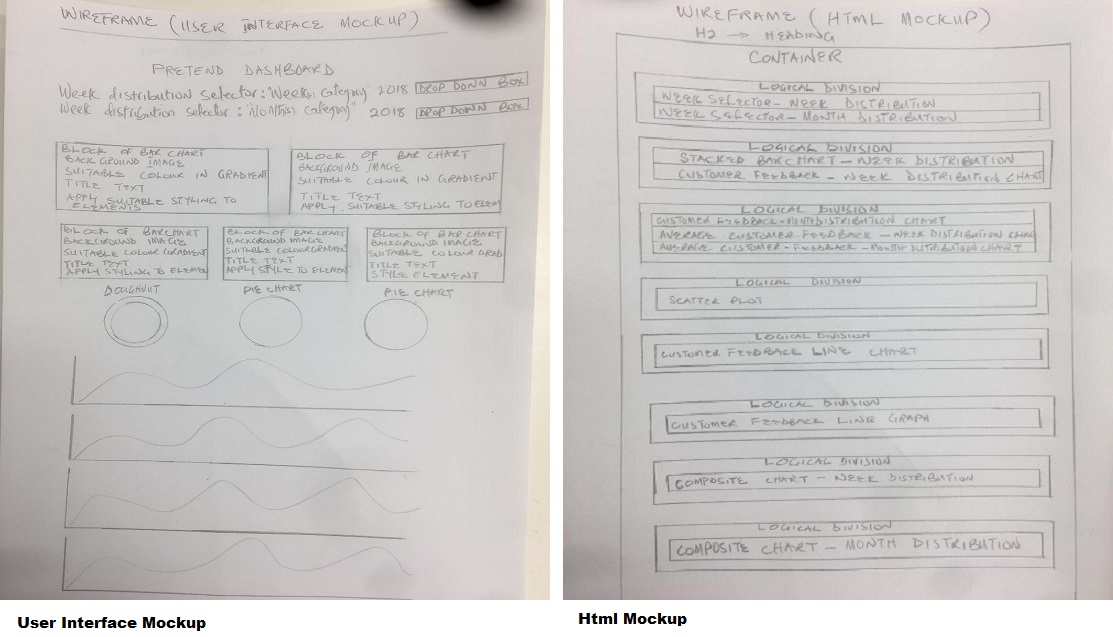 WIREFRAME (USER INTERFACE MOCKUP)
PRETEND DASHBOARD
Week distribution selector: "Weeks: Category" 2018 DROP DOWN BOX
Week distribution selector: "Months: Category" 2018 DROP DOWN BOX
BLOCK OF BAR CHART
BACKGROUND IMAGE
SUITABLE COLOUR IN GRADIENT
TITLE TEXT
APPLY SUITABLE STYLING TO
ELEMENTS
BLOCK OF BAR CHART
BACKGROUND IMAGE
SUITABLE COLOUR IN GRADIENT
TITLE TEXT
APPLY SUITABLE STYLING TO ELEM
BLOCK OF BARCHART
BACKGROUND IMAGE
SUITABLE COLOUR GRADIENT
TITLE TEXT
APPLY STYLING TO ELEMEN
BLOCK OF BAR CHART
BACKGROUND IMAGE
SUITABLE COLOUR GRADIENT
TITLE TEXT
APPLY STYLE TO ELEMEN
BLOCK OF BAR CHART
BACKGROUND IMAGE
SUITABLE COLOUR GRAD
TITLE TEXT
STYLE ELEMENT
DOUGHNUT
PIE CHART
PIE CHART
User Interface Mockup
WIREFRAME (HTML MOCKUP)
H2 → HEADING
CONTAINER
LOGICAL DIVISION
WEEK SELECTOR - WEEK DISTRIBUTION
WEEK SELECTOR - MONTH DISTRIBUTION
LOGICAL DIVISION
STACKED BAR CHART - WEEK DISTRIBUTION
CUSTOMER FEEDBACK - WEEK DISTRIBUTION CHART
LOGICAL DIVISION
CUSTOMER FEEDBACK - DISTRIBUTION CHART
AVERAGE CUSTOMER FEEDBACK - WEEK DISTRIBUTION CHAR
AVERAGE CUSTOMER FEEDBACK - MONTH DISTRIBUTION CHART
LOGICAL DIVISION
SCATTER PLOT
LOGICAL DIVISION
CUSTOMER FEEDBACK LINE CHART
LOGICAL DIVISION
CUSTOMER FEEDBACK LINE GRAPH
LOGICAL DIVISION
COMPOSITE CHART - WEEK DISTRIBUTION
LOGICAL DIVISION
COMPOSITE CHART - MONTH DISTRIBUTION
Html Mockup